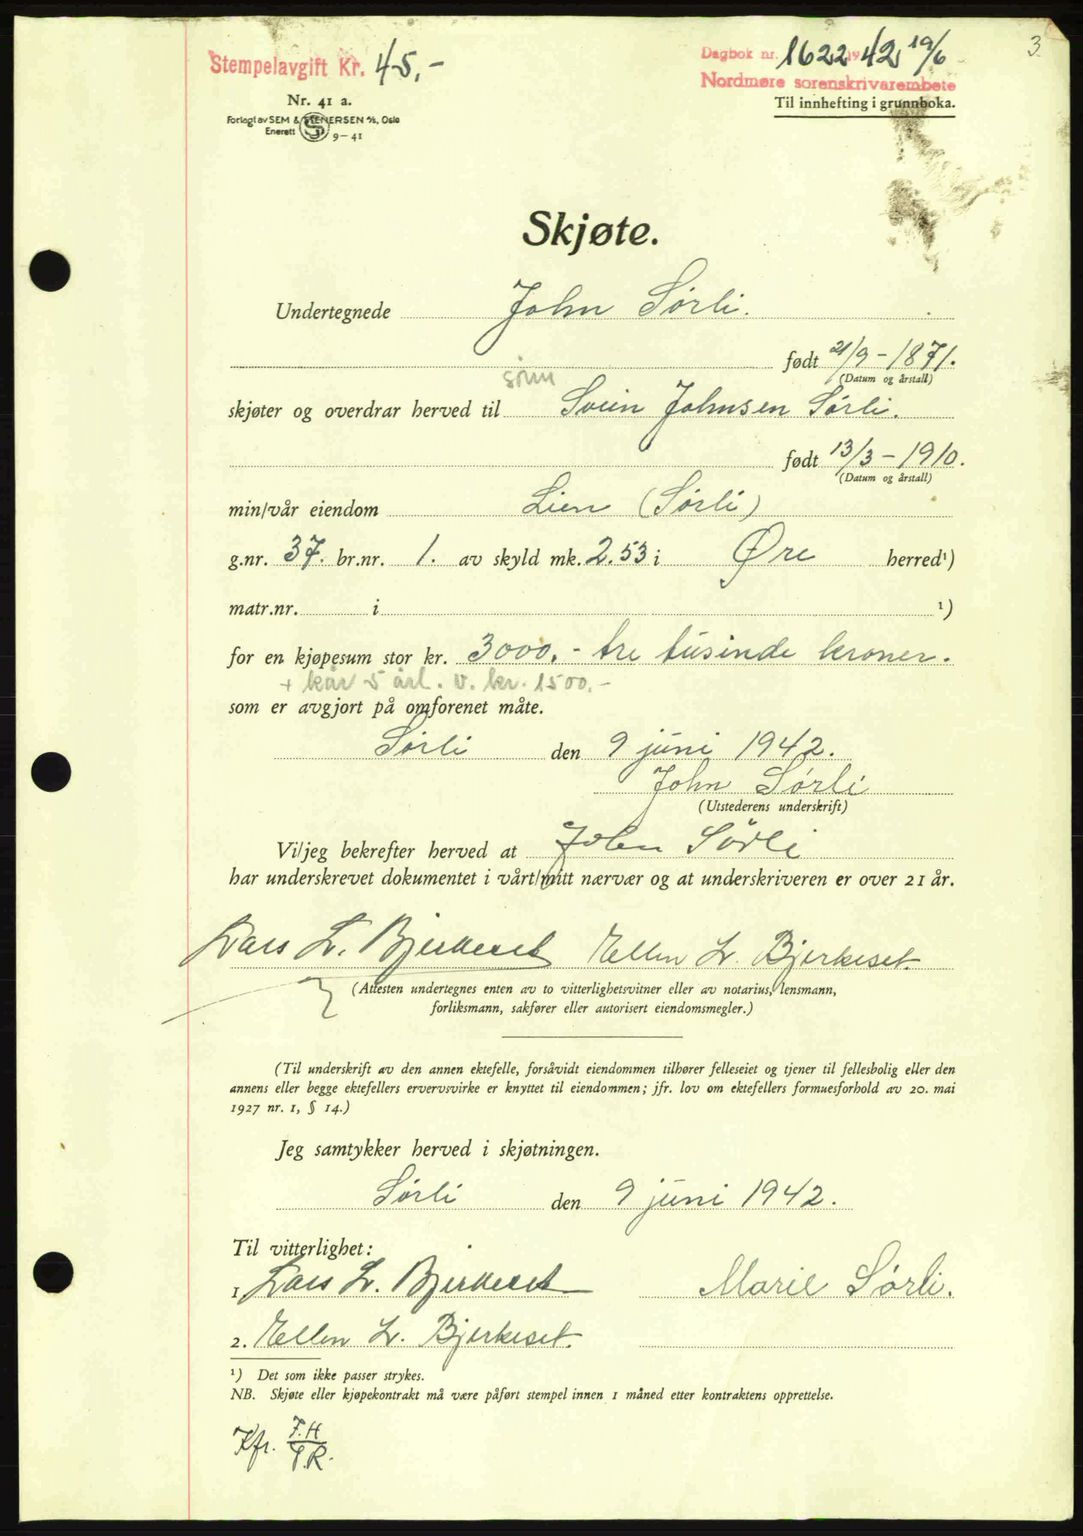 3
Stempelavgift Kr. 45,-
Dagbok nr. 1622 1942 19/6
Nordmøre sorenskrivarembete
Nr. 41 a.
Til innhefting i grunnboka.
Forlagt av SEM & STENERSEN A/S, Oslo
Enerett 9-41
Skjøte.
Undertegnede John Sørli.
født 21/9 - 1871.
(Datum og årstall)
sønn
skjøter og overdrar herved til Svein Johnsen Sørli.
født 13/3 - 1910.
(Datum og årstall)
min/vår eiendom Lien (Sørli)
g.nr. 37. br.nr. 1. av skyld mk. 2.53 i Øre herred¹)
matr.nr. i ¹)
for en kjøpesum stor kr. 3000.- tre tusinde kroner.
+ kår 5 årl. v. kr. 1500.-
som er avgjort på omforenet måte.
Sørli den 9 juni 1942.
John Sørli
(Utstederens underskrift)
Vi/jeg bekrefter herved at John Sørli
har underskrevet dokumentet i vårt/mitt nærvær og at underskriveren er over 21 år.
Lars L. Bjerkeset Ellen L. Bjerkeset.
(Attesten undertegnes enten av to vitterlighetsvitner eller av notarius, lensmann,
forliksmann, sakfører eller autorisert eiendomsmegler.)
(Til underskrift av den annen ektefelle, forsåvidt eiendommen tilhører felleseiet og tjener til fellesbolig eller den
annens eller begge ektefellers ervervsvirke er knyttet til eiendommen; jfr. lov om ektefellers formuesforhold av 20. mai
1927 nr. 1, § 14.)
Jeg samtykker herved i skjøtningen.
Sørli den 9 juni 1942.
Til vitterlighet:
1 Lars L. Bjerkeset Marie Sørli.
2. Ellen L. Bjerkeset.
¹) Det som ikke passer strykes.
NB. Skjøte eller kjøpekontrakt må være påført stempel innen 1 måned etter kontraktens opprettelse.
Kfr. F.H
P.R.